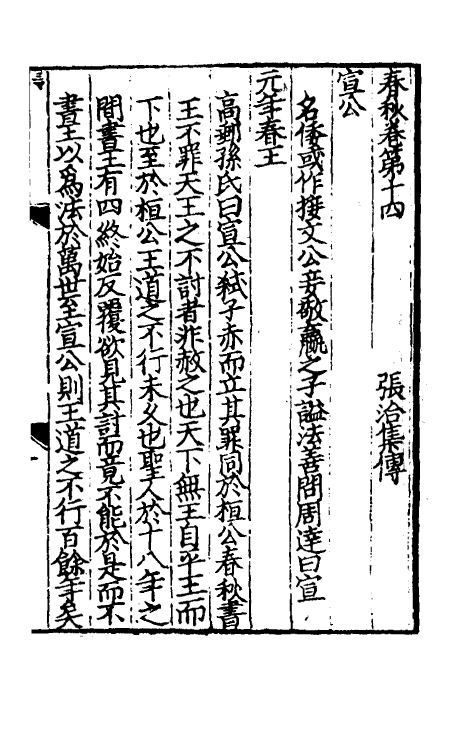 春秋卷第十四　張洽集傳
宣公
名倭或作接文公妾敬嬴之子謚法善問周達曰宣
元年春王
高郵孫氏曰宣公弒子赤而立其罪同於桓公春秋書
王不罪天王之不討者非赦之也天下無王自平王而
下也至於桓公王道之不行未久也聖人於十八年之
間書王有四終始反覆欲見其討而竟不能於是而不
書王以爲法於萬世至宣公則王道之不行百餘年矣